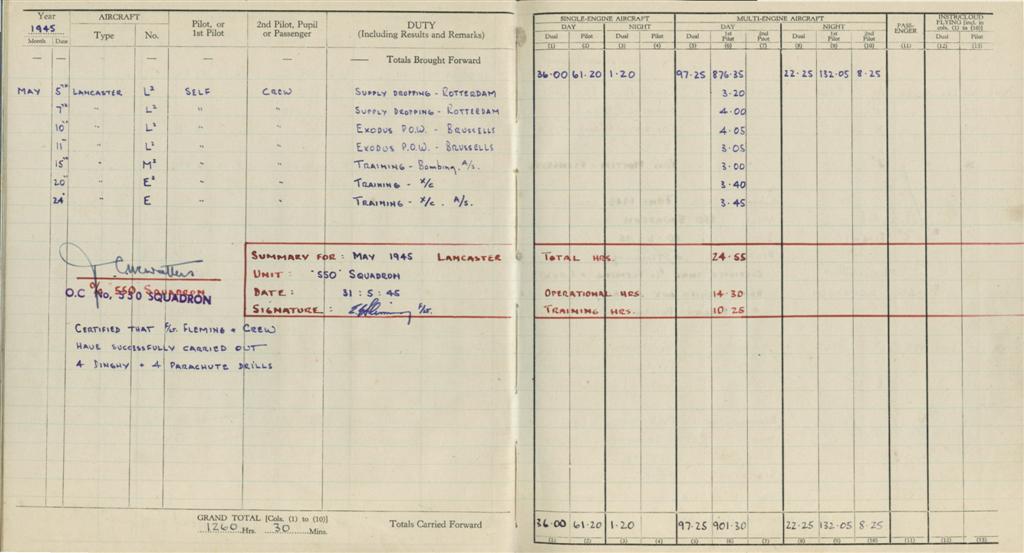 Year
1945
Month Date
AIRCRAFT
Type No.
Pilot, or
1st Pilot
2nd Pilot, Pupil
or Passenger
DUTY
(Including Results and Remarks)
SINGLE-ENGINE AIRCRAFT MULTI-ENGINE AIRCRAFT PASS-ENGER INSTR/CLOUD FLYING [Incl. in cols. (1) to (10)]
DAY NIGHT DAY NIGHT
Dual Pilot Dual Pilot Dual 1st Pilot 2nd Pilot Dual 1st Pilot 2nd Pilot Dual Pilot
(1) (2) (3) (4) (5) (6) (7) (8) (9) (10) (11) (12) (13)
— — — — — — — Totals Brought Forward
36·00 61·20 1·20 97·25 876·35 22·25 132·05 8·25
MAY 5TH LANCASTER L² SELF CREW SUPPLY DROPPING - ROTTERDAM 3·20
7TH " L² " " SUPPLY DROPPING - ROTTERDAM 4·00
10" " L² " " EXODUS P.O.W. - BRUSSELLS 4·05
11" " L² " " EXODUS P.O.W. - BRUSSELLS 3·05
15" " M² " " TRAINING - Bombing, A/S. 3·00
20" " E² " " TRAINING - X/C 3·40
24" " E " " TRAINING - X/C. A/S. 3·45
O.C No. 550 SQUADRON
SUMMARY FOR: MAY 1945 LANCASTER TOTAL HRS. 24·55
UNIT: 550 SQUADRON
DATE: 31:5:45 OPERATIONAL HRS. 14·30
SIGNATURE: F/LT. TRAINING HRS. 10·25
CERTIFIED THAT F/LT. FLEMING + CREW
HAVE SUCCESSFULLY CARRIED OUT
4 DINGHY + 4 PARACHUTE DRILLS
GRAND TOTAL [Cols. (1) to (10)]
1260 Hrs. 30 Mins.
Totals Carried Forward
36·00 61·20 1·20 97·25 901·30 22·25 132·05 8·25
(1) (2) (3) (4) (5) (6) (7) (8) (9) (10) (11) (12) (13)